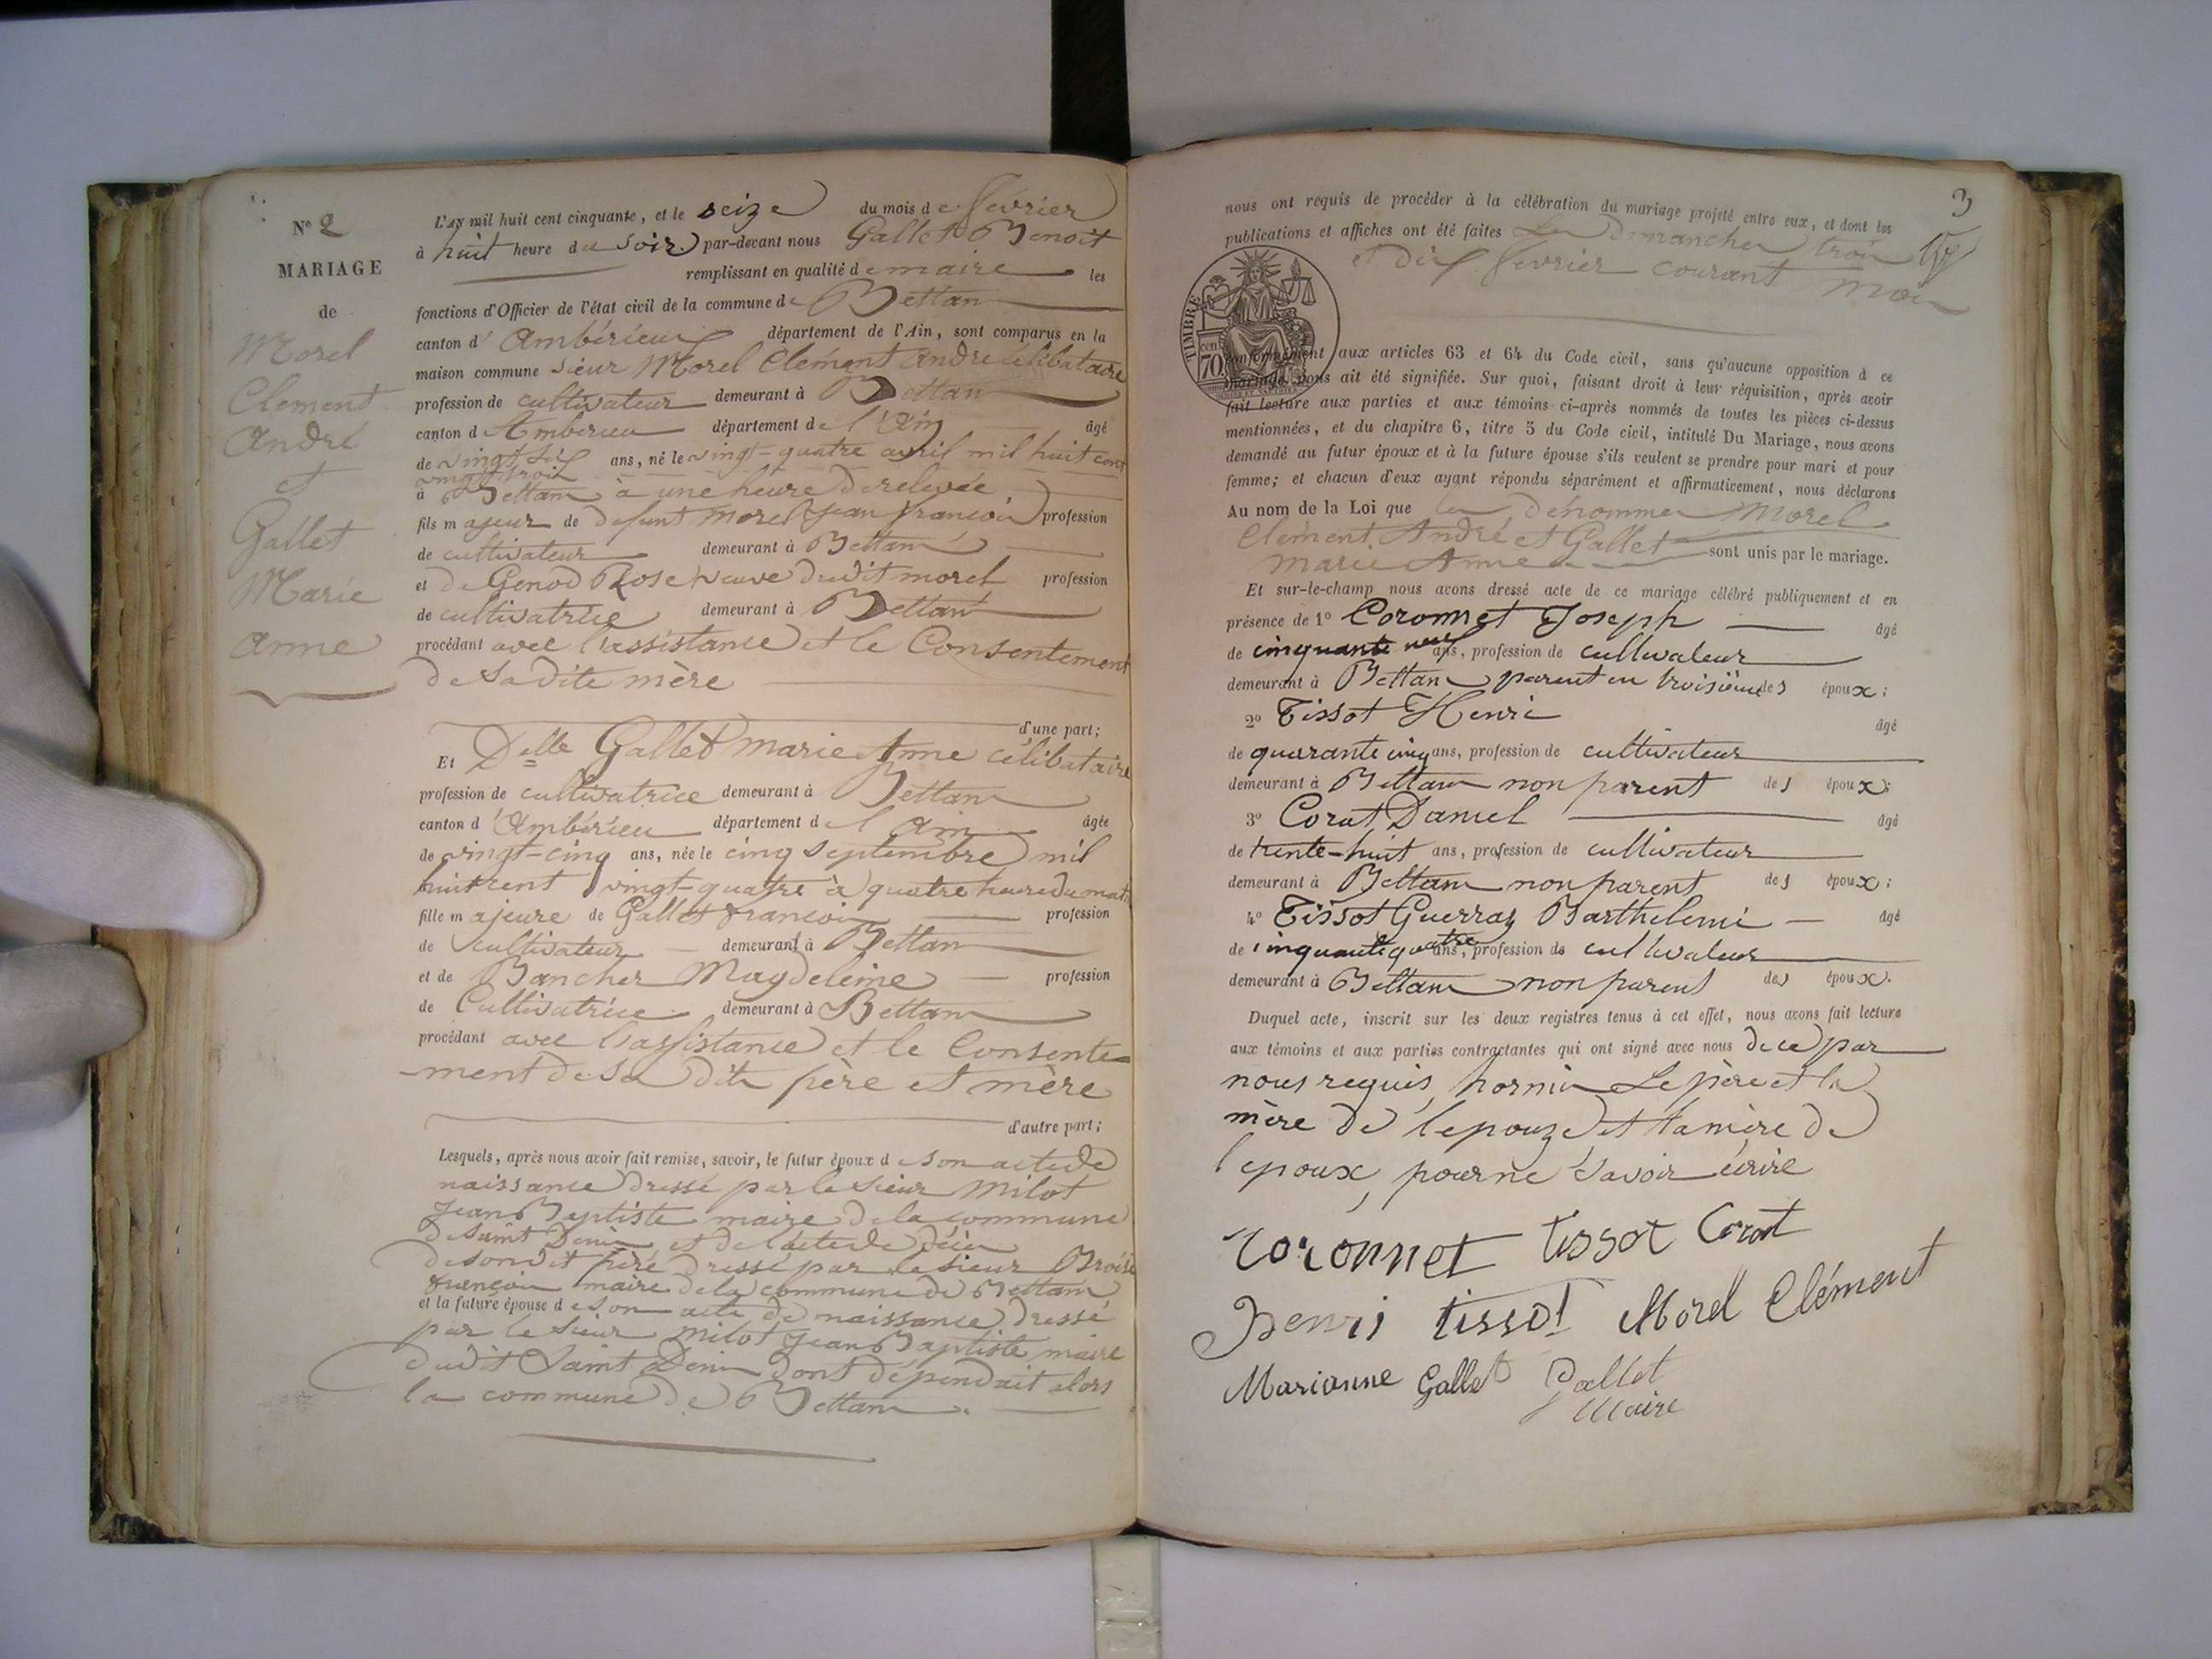 N° 2
MARIAGE
de
Morel
Clement
André
et
Gallet
Marie
Anne
L'AN mil huit cent cinquante, et le seize du mois de février
à huit heure du soir par-devant nous Gallet Benoit
remplissant en qualité de maire les
fonctions d'Officier de l'état civil de la commune de Bettan
canton d'Ambérieu département de l'Ain, sont comparus en la
maison commune sieur Morel Clément andré célibataire
profession de cultivateur demeurant à Bettan
canton d Amberieu département de l'Ain âgé
de vingt six ans, né le vingt-quatre avril mil huit cent
vingt trois
à Bettan à une heure de relevée
fils majeur de defunt morel Jean françois profession
de cultivateur demeurant à Bettan
et de Genod Rose veuve dudit morel profession
de cultivatrice demeurant à Bettant
procédant avec l'assistance et le Consentement
de sadite mère
d'une part;
Et Delle Gallet marie Anne célibataire
profession de cultivatrice demeurant à Bettan
canton d'Ambérieu département de l'Ain âgée
de vingt-cinq ans, née le cinq septembre mil
huit cent vingt-quatre à quatre heure du mat.
fille majeure de Gallet francois profession
de cultivateur demeurant à Bettan
et de Bancher Magdeleine profession
de Cultivatrice demeurant à Bettan
procédant avec l'assistance et le Consente-
-ment de sa dite père et mère
d'autre part;
Lesquels, après nous avoir fait remise, savoir, le futur époux de son acte de
naissance dressé par le sieur Milot
Jean Baptiste maire de la commune
de saint Denis et de l'acte de décès
de son dit père dressé par le sieur
françois maire de la commune de Bettan
et la future épouse de son acte de naissance dressé
par le sieur Milot Jean Baptiste maire
dudit Saint Denis dont dépendait alors
la commune de Bettan.
3
nous ont requis de procéder à la célébration du mariage projeté entre eux, et dont les
publications et affiches ont été faites Les Dimanches trois
et dix février courant mois
TIMBRE
70 cen
conformément aux articles 63 et 64 du Code civil, sans qu'aucune opposition à ce
mariage nous ait été signifiée. Sur quoi, faisant droit à leur réquisition, après avoir
fait lecture aux parties et aux témoins ci-après nommés de toutes les pièces ci-dessus
mentionnées, et du chapitre 6, titre 5 du Code civil, intitulé Du Mariage, nous avons
demandé au futur époux et à la future épouse s'ils veulent se prendre pour mari et pour
femme; et chacun d'eux ayant répondu séparément et affirmativement, nous déclarons
Au nom de la Loi que les dénommes Morel
Clément André et Gallet sont unis par le mariage.
Marie Anne
Et sur-le-champ nous avons dressé acte de ce mariage célébré publiquement et en
présence de 1° Coronnet Joseph âgé
de cinquante neuf ans, profession de cultivateur
demeurant à Bettan parent en troisième des époux;
2° Tissot Henri âgé
de quarante cinq ans, profession de cultivateur
demeurant à Bettan non parent des époux;
3° Corat Daniel âgé
de trente-huit ans, profession de cultivateur
demeurant à Bettan non parent des époux;
4° Tissot Guerraz Barthelemi âgé
de cinquante quatre ans, profession de cultivateur
demeurant à Bettan non parent des époux.
Duquel acte, inscrit sur les deux registres tenus à cet effet, nous avons fait lecture
aux témoins et aux parties contractantes qui ont signé avec nous de ce par
nous requis, hormis Le père et la
mère de l'epouze et la mère de
l'epoux, pour ne savoir écrire
Coronnet tissot Corat
henri tissot Morel Clément
Marianne Gallet Gallet
Maire